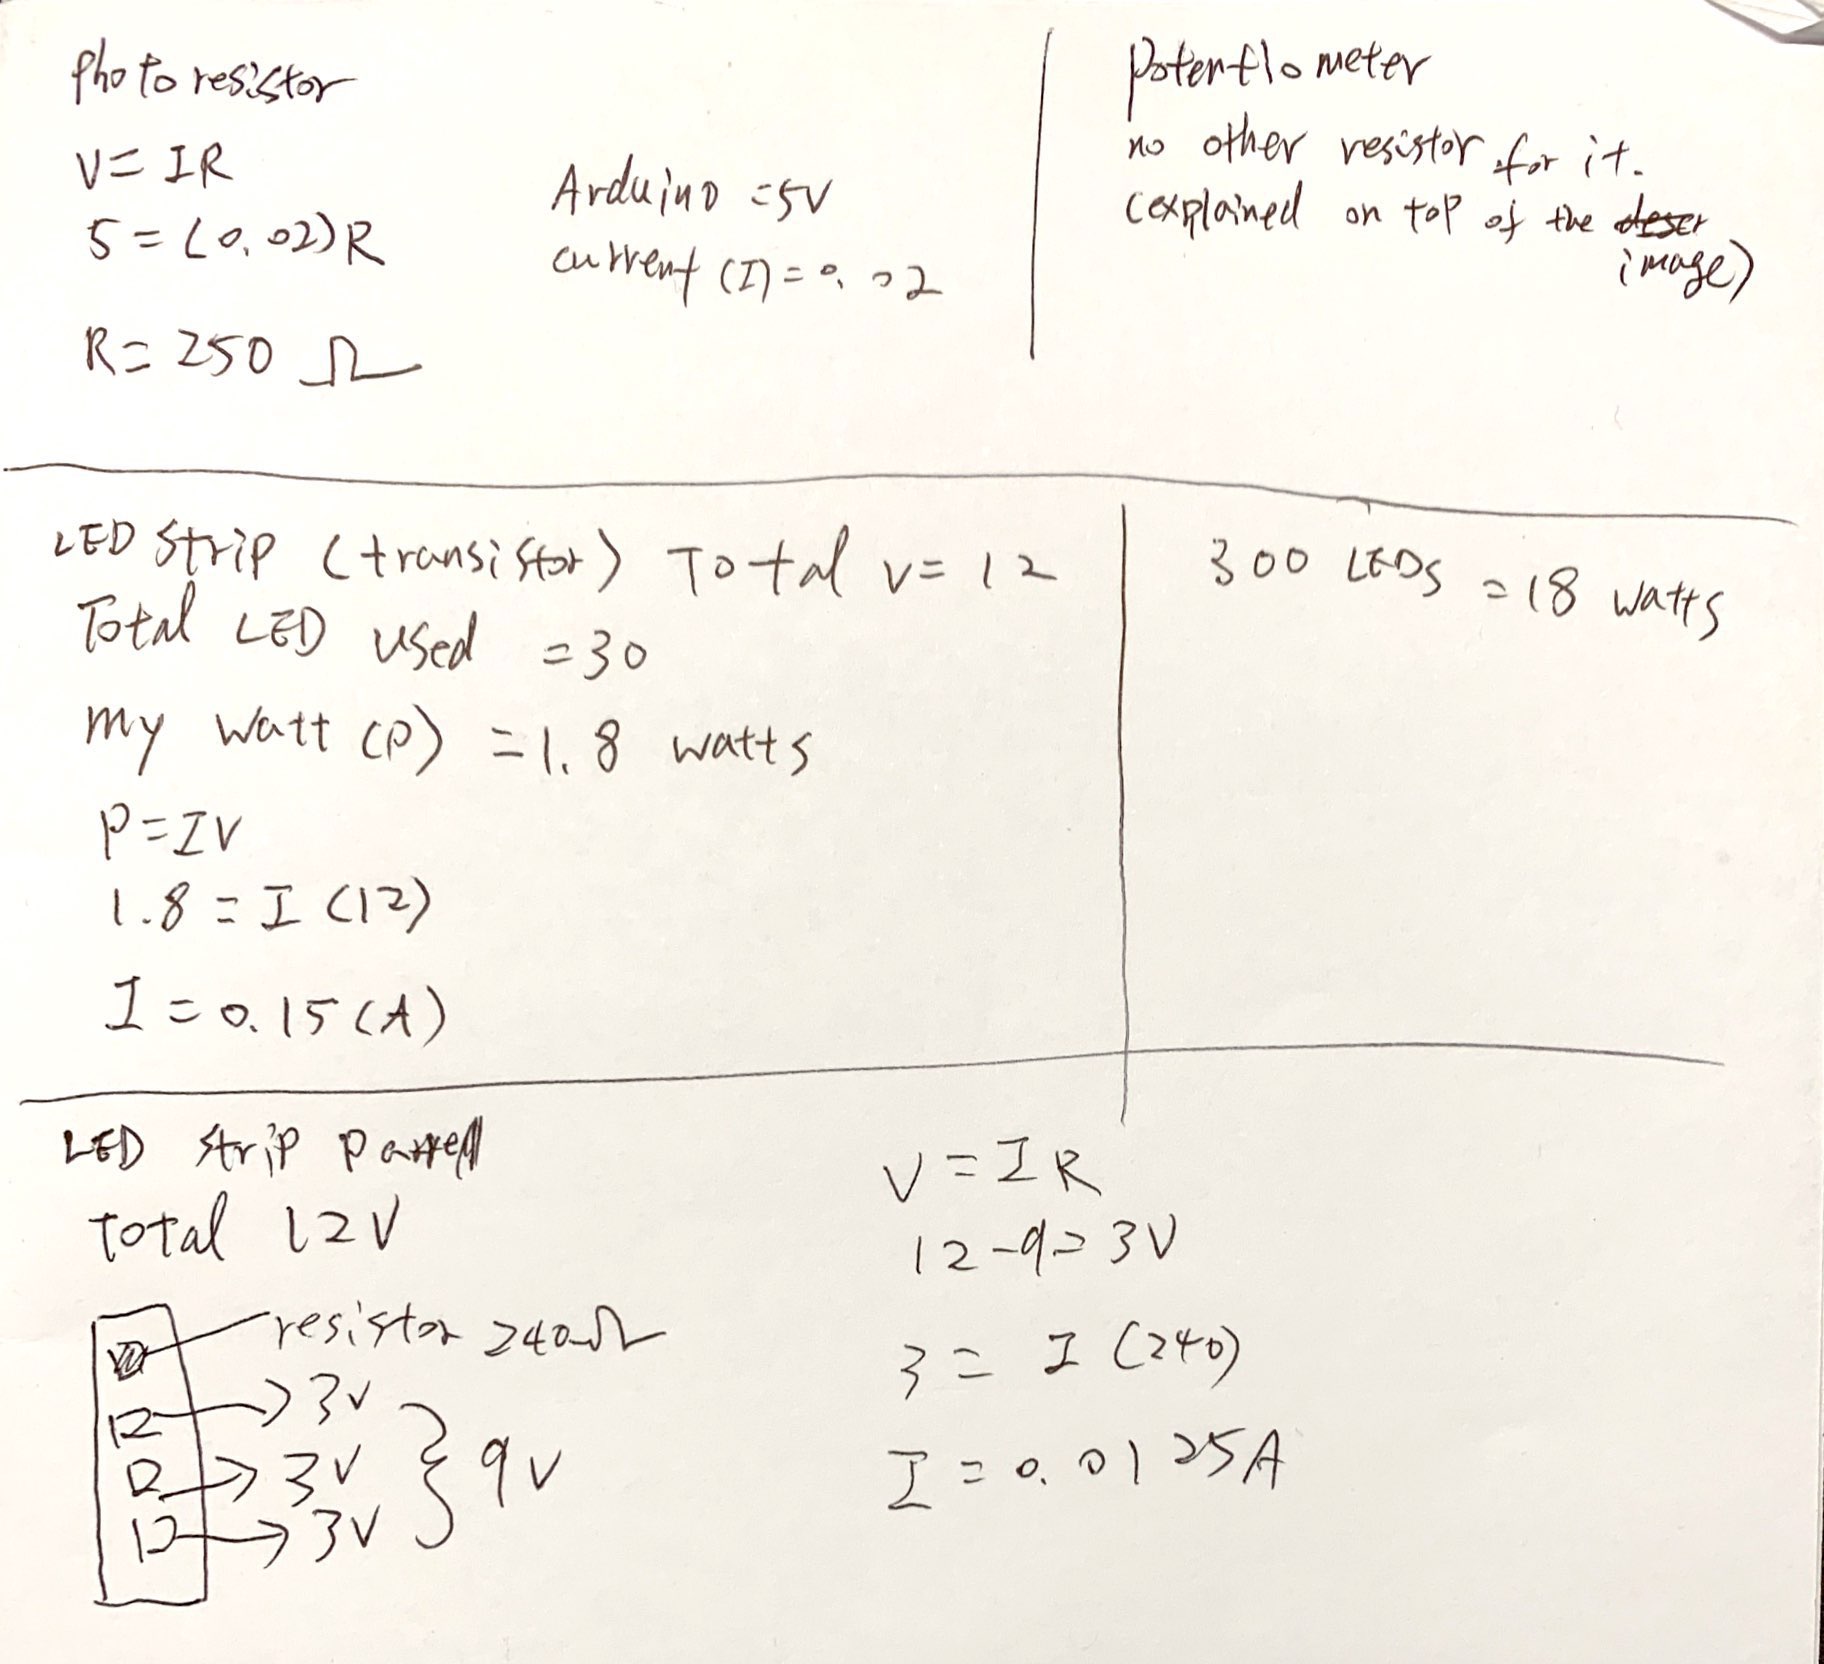 Photo resistor
V = IR
5 = (0.02)R
R = 250 Ω
Arduino = 5V
current (I) = 0.02
Potentiometer
no other resistor for it.
(explained on top of the
image)
LED strip (transistor) Total V = 12
Total LED used = 30
my watt (P) = 1.8 watts
P = IV
1.8 = I (12)
I = 0.15 (A)
300 LEDs = 18 watts
LED strip
total 12V
resistor 240Ω
3V
3V
3V
9V
V = IR
12 - 9 = 3V
3 = I (240)
I = 0.0125A